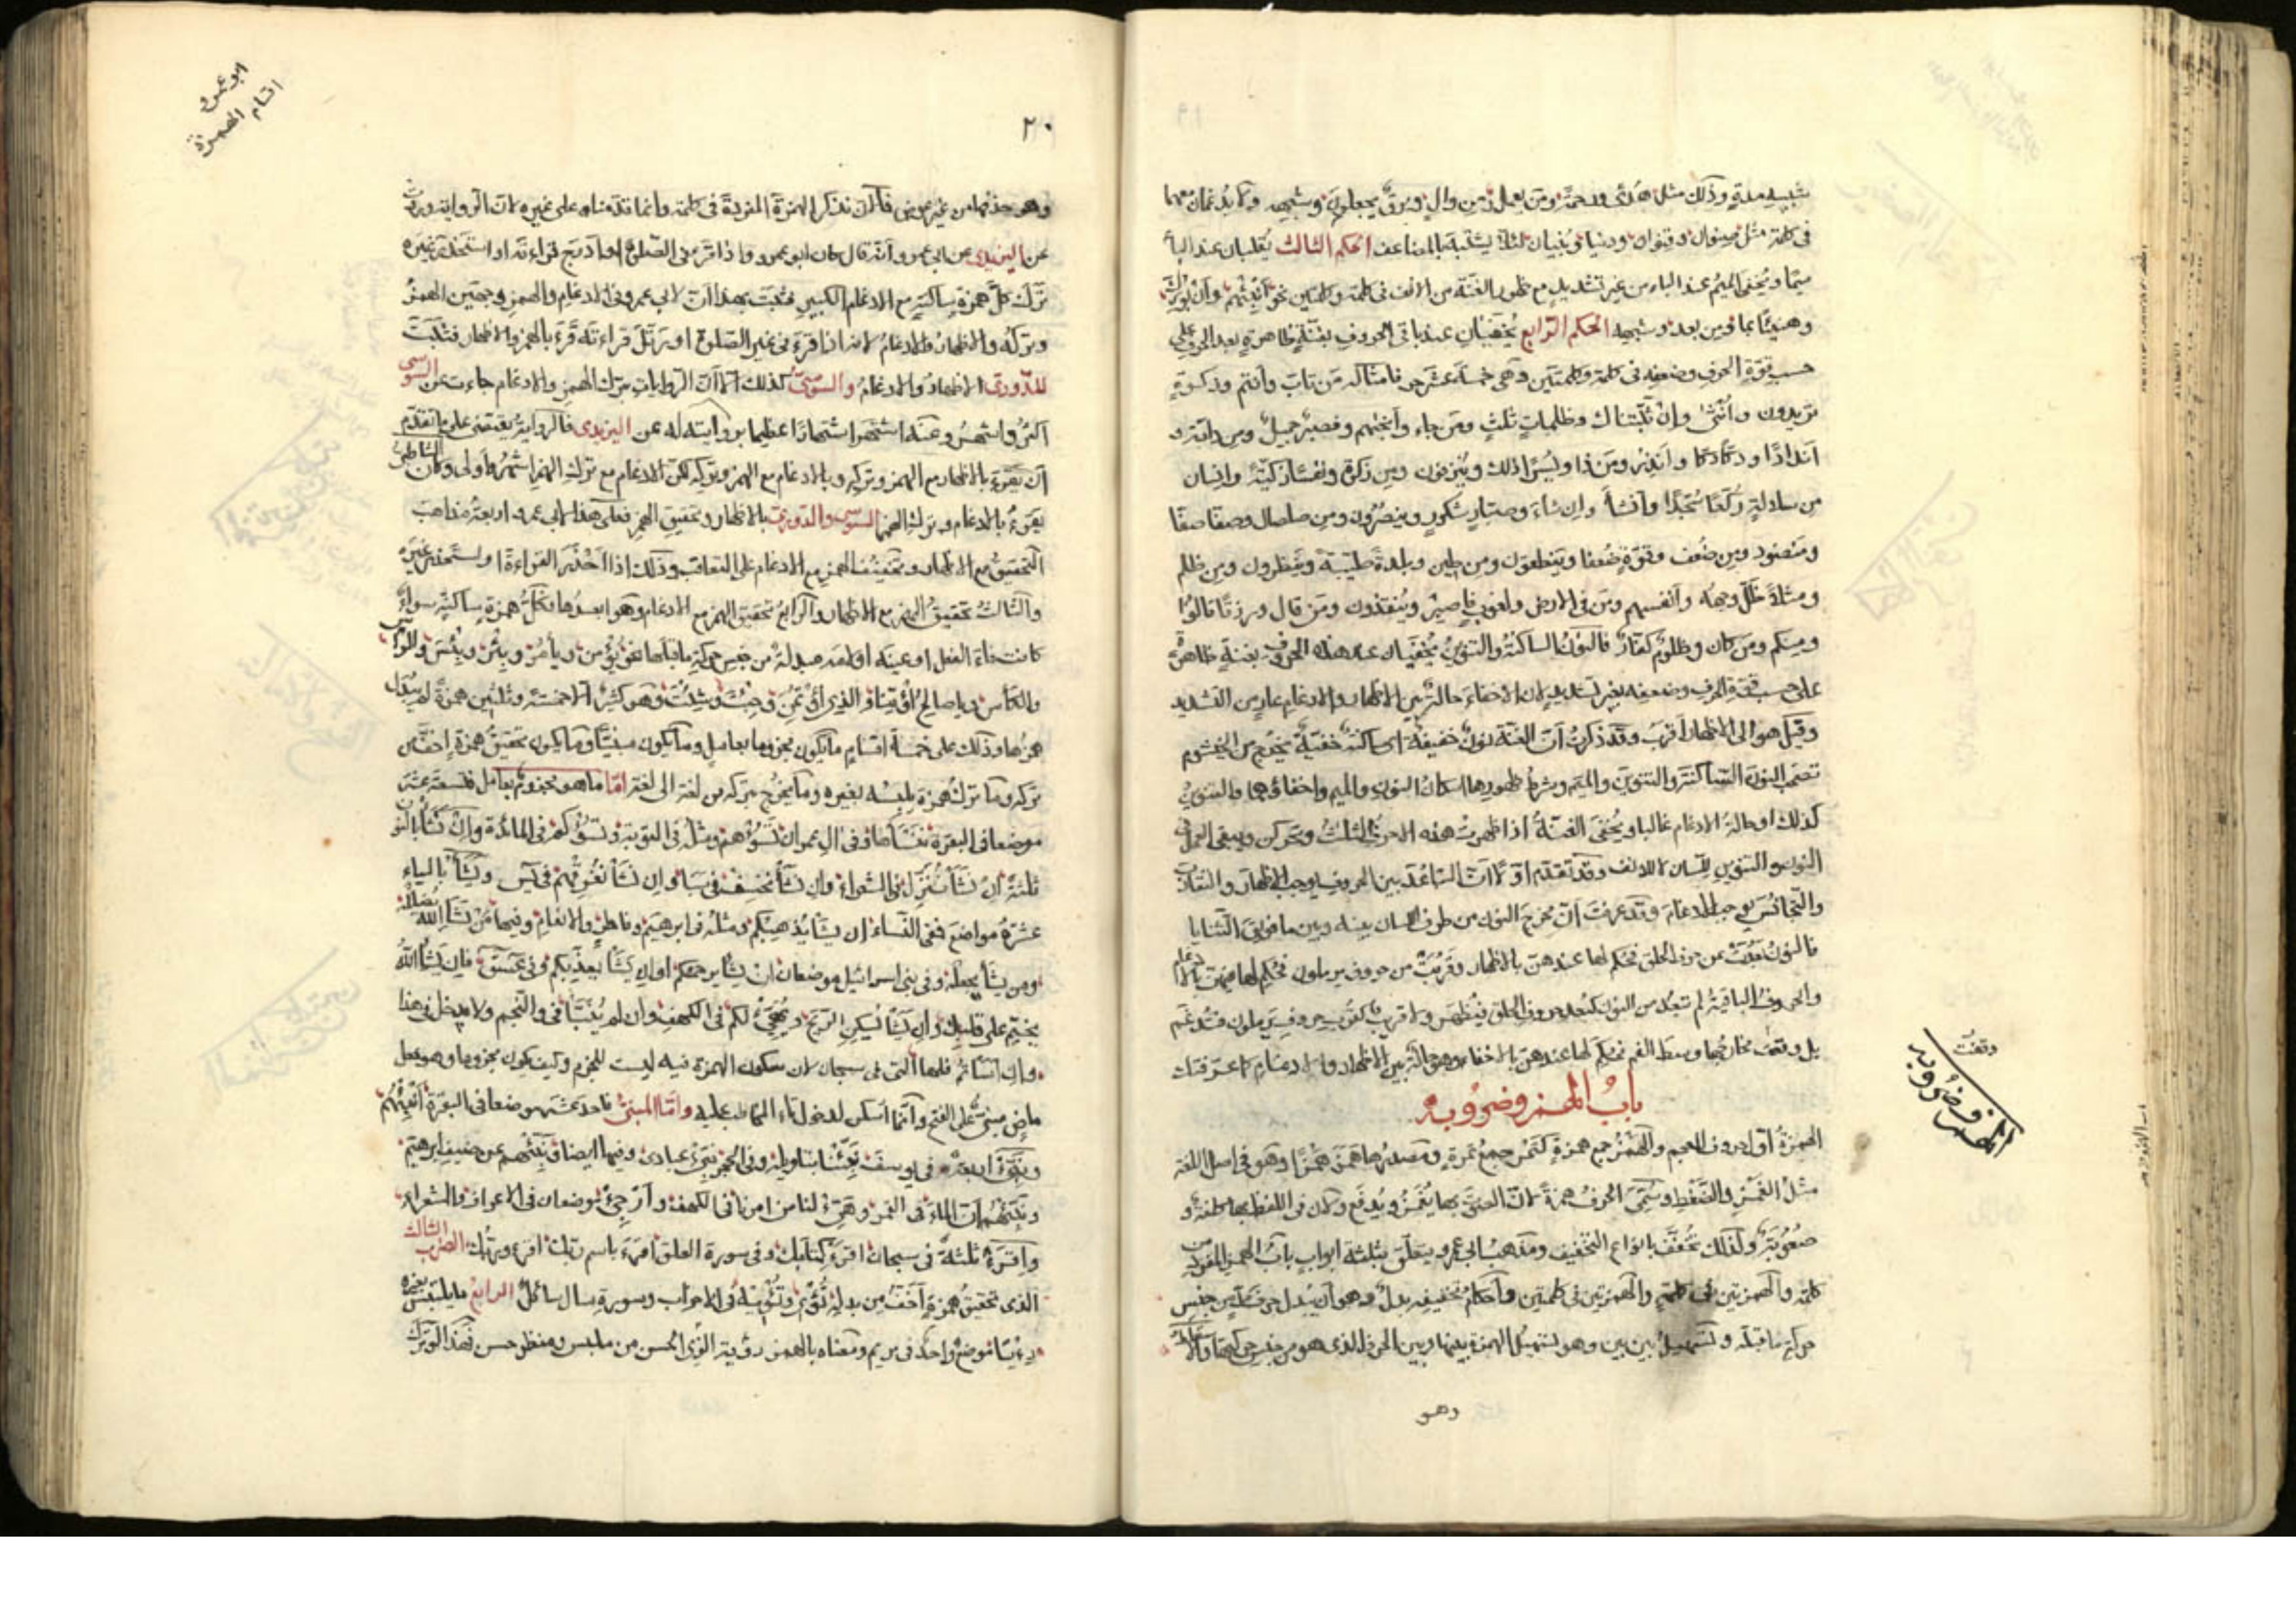 في كلمة مثل صنوان وقنوان ودنيا وبنيان لئلا يشتبه بالمضاعف الحكم الثالث يقلبان عند الباء
ميما ويخفى الميم عند الباء من غير تشديد مع ظهور الغنة من الانف في كلمة وكلمتين نحو أنبئهم وأن بورك
وهنيئا بما ومن بعد وشبهه الحكم الرابع يخفيان عند باقي الحروف بغنة ظاهرة بعد الحرف على
حسب قوة الحرف وضعفه في كلمة وكلمتين وهي خمسة عشر حرفا مثاله من تاب وأنتم
تريدون وأنثى وإن ثبتناك وظلمات ثلث ومن جاء وأنجيتهم وفصبر جميل ومن دابة و
اندادا ودكا دكا وأنذر ومن ذا ويسرا ذلك وينزفون ومن زكوة ونفسا زكية وانسان
من سلالة ركعا سجدا وأنشأ وان شاء وصبار شكور وينصرون ومن صلصال وصفا صفا
ومنضود ومن ضعف وقوة ضعفا وينطقون ومن طين وبلدة طيبة وينظرون ومن ظلم
ومثلا ظل وجهه وأنفسهم ومن في الارض ولغوب وينقذون ومن قال ورزقا قالوا
ومنكم ومن كان وظلوم كفار فالنون الساكنة والتنوين يخفيان عند هذه الحروف بغنة ظاهرة
على حسب قوة الحرف وضعفه بغير تشديد لان الاخفاء حالة بين الاظهار والادغام عار من التشديد
وقيل هو الى الاظهار أقرب وقد ذكرت أن الغنة نون خفيفة اي ساكنة خفية يخرج من الخيشوم
تصحب النون الساكنة والتنوين والميم وشرط ظهورها اسكان النون والميم واخفاؤهما والتنوين
كذلك او حالة الادغام غالبا ويخفى الغنة اذا ظهرت هذه الاحرف الثلث وتحركن ويبقى العمل في
النون والتنوين للسان لا للانف وقد تقدم اولا أن التباعد بين الحروف يوجب الاظهار والتقارب
والتجانس يوجب الادغام وقد عرفت أن مخرج النون من طرف اللسان بينه وبين ما فويق الثنايا
فالنون بعدت عن حروف الحلق فحكم لها عندهن بالاظهار وقربت من حروف يرملون فحكم لها فيهن بالادغام
والحروف الباقية لم تبعد من النون كبعد حروف الحلق فيظهر ولا قريب كقرب حروف يرملون فتدغم
بل وقعت مخارجها وسط الفم فحكم لها عندهن بالاخفاء وهو حالة بين الاظهار والادغام كما عرفناك
باب الهمز وضروبه
الهمزة أول حروف المعجم والهمز جمع همزة كتمر جمع تمرة ومصدرها همز همزا وهو في اصل اللغة
مثل الغمز والضغط وسمي الحرف همزة لان الصوت بها يغمز ويدفع وكان في اللفظ بها كلفة و
صعوبة ولذلك تخفف بانواع التخفيف ومذهب ابي عمرو يتعلق بثلثة ابواب باب الهمز المفرد من
كلمة والهمزتين في كلمة والهمزتين في كلمتين وأحكام تخفيفه بدل وهو أن يبدل حرف مد من جنس
حركة ما قبله وتسهيل بين بين وهو تسهيل الهمزة بينها وبين الحرف الذي هو من جنس حركتها والاسقاط
وهو
وقفت
الهمز وضروبه
ابو عمرو
اقسام الهمزة
٢٠
وهو حذفها من غير عوض فالآن نذكر الهمزة المفردة في كلمة وانما قدمناه على غيره لان الرواية وردت
عن اليزيدي عن ابي عمرو أنه قال كان ابو عمرو اذا قرأ في الصلوة او أدرج قراءته او استخف غيره
ترك كل همزة ساكنة مع الادغام الكبير فثبت بهذا أن لابي عمرو في الادغام والهمز وجهين الهمز
وتركه والاظهار والادغام لانه اذا قرئ في غير الصلوة او رتل قراءته قرئ بالهمز والاظهار فثبت
للدوري الاظهار والادغام والسوسي كذلك الا أن الروايات بترك الهمز والادغام جاءت عن السوسي
اكثر واشهر وعنه اشتهر اشتهارا عظيما بروايته له عن اليزيدي فالرواية يقتضي على ما تقدم
أن يقرئ بالاظهار مع الهمز وتركه وبالادغام مع الهمز وتركه لكن الادغام مع ترك الهمز اشهر واولى وكان الشاطبي
يقرئ بالادغام وترك الهمز السوسي والدوري بالاظهار وتحقيق الهمز فعلى هذا لابي عمرو اربعة مذاهب
والثالث تحقيق الهمز مع الاظهار والرابع تحقيق الهمز مع الادغام وهو ابعدها فكل همزة ساكنة سواء
كانت فاء الفعل او عينه او لامه مبدلة من جنس حركة ما قبلها نحو يؤمن ويأمر وبئر وبئس واللؤلؤ
والكأس ويا صالح ائتنا والذي اؤتمن وجئت وشئت وهو كثير الا خمسة وثلثين همزة لم يبدل
همزها وذلك على خمسة اقسام ما يكون مجزوما بعامل وما يكون مبنيا وما يكون تحقيق همزة اخف من
تركه وما ترك همزة يلبسه بغيره وما يخرج بتركه من لغة الى لغة اما ما هو مجزوم بعامل فتسعة عشر
موضعا في البقرة ننسأها وفي ال عمران تسؤهم ومثله في التوبة وتسؤكم في المائدة وان نشأ بالنون
ثلثة ان نشأ ننزل في الشعراء وان نشأ نخسف في سبأ وان نشأ نغرقهم في يس ويشأ بالياء
عشرة مواضع ففي النساء ان يشأ يذهبكم ومثله في ابرهيم وفاطر والانعام وفيها من يشأ الله يضلله
ومن يشأ يجعله وفي بني اسرائيل موضعان ان يشأ يرحمكم او ان يشأ يعذبكم وفي عسق فان يشأ الله
يختم على قلبك وان يشأ يسكن الريح ويهيئ لكم في الكهف وان لم ينبأ في والنجم ولا يدخل في هذا
وان اسأتم فلها التي في سبحان لان سكون الهمزة فيه ليست للجزم وكيف يكون مجزوما وهو فعل
ماض مبني على الفتح وأنما أسكن لدخول تاء المخاطب عليه وأما المبني فاحد عشر موضعا في البقرة أنبئهم
في يوسف نبئنا بتأويله وفي الحجر نبئ عبادي وفيها ايضا ونبئهم عن ضيف ابرهيم
ونبئهم أن الماء في القمر وهيئ لنا من امرنا في الكهف وأرجئ موضعان في الاعراف والشعراء
واقرأ ثلثة في سبحان اقرأ كتابك وفي سورة العلق اقرأ باسم ربك اقرأ وربك الضرب الثالث
الذي تحقيق همزة أخف من بدله تؤي وتؤيه في الاحزاب وسورة سال سائل الرابع ما يلتبس بغيره
رءيا موضع واحد في مريم ومعناه بالهمز رؤية الزي الحسن من ملبس ومنظر حسن فهذا لو ترك